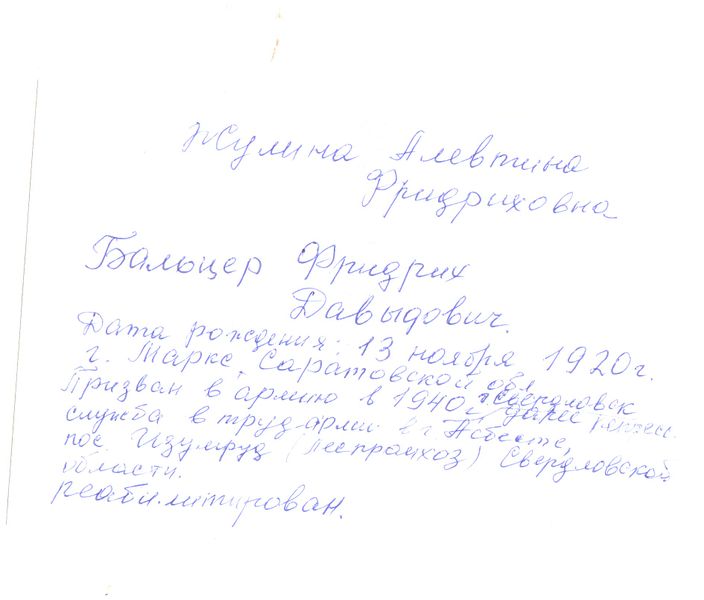 Жулина Алевтина
Фридриховна
Бальцер Фридрих
Давыдович.
Дата рождения: 13 ноября 1920г.
г. Маркс, Саратовской обл.
Призван в армию в 1940г. г. Свердловск
служба в трудармии в г. Асбесте,
пос. Изумруд (леспромхоз) Свердловской
области.
реабилитирован.